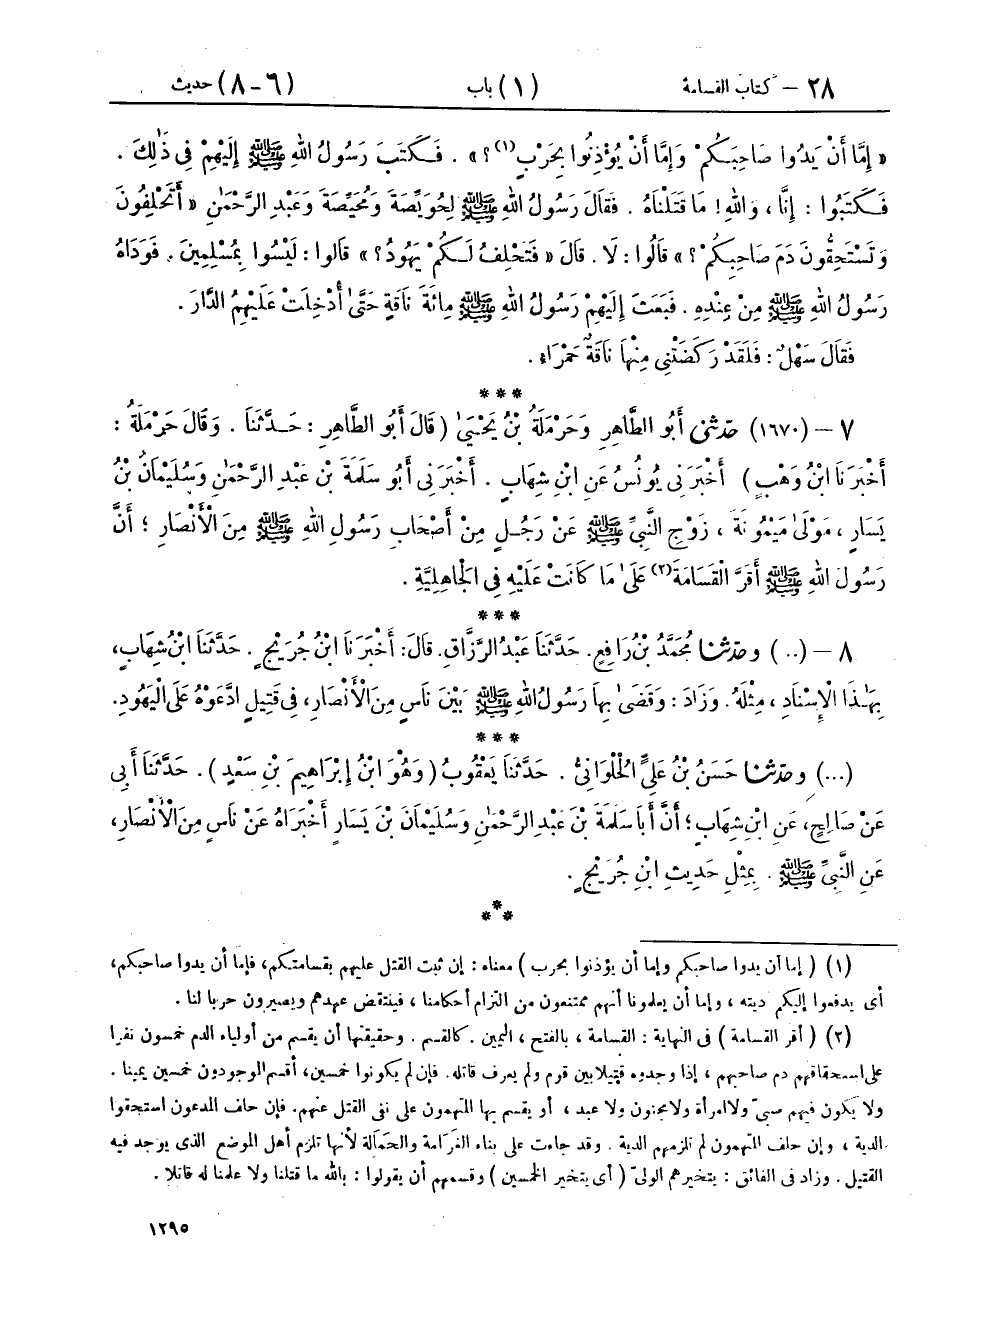 ٢٨ – كتاب القسامة (١) باب (٦-٨) حديث
« إِمَّا أَنْ يَدُوا صَاحِبَكُمْ وَإِمَّا أَنْ يُؤْذِنُوا بِحَرْبٍ(١)؟ » . فَكَتَبَ رَسُولُ اللهِ ﷺ إِلَيْهِمْ فِى ذَٰلِكَ .
فَكَتَبُوا : إِنَّا ، وَاللهِ! مَا قَتَلْنَاهُ . فَقَالَ رَسُولُ اللهِ ﷺ لِحُوَيِّصَةَ وَمُحَيِّصَةَ وَعَبْدِ الرَّحْمَٰنِ « أَتَحْلِفُونَ
وَتَسْتَحِقُّونَ دَمَ صَاحِبِكُمْ؟ » قَالُوا : لَا . قَالَ « فَتَحْلِفُ لَكُمْ يَهُودُ؟ » قَالوا : لَيْسُوا بِمُسْلِمِينَ . فَوَدَاهُ
رَسُولُ اللهِ ﷺ مِنْ عِنْدِهِ . فَبَعَثَ إِلَيْهِمْ رَسُولُ اللهِ ﷺ مِائَةَ نَاقَةٍ حَتَّىٰ أُدْخِلَتْ عَلَيْهِمُ الدَّارَ .
فَقَالَ سَهْلٌ : فَلَقَدْ رَكَضَتْنِى مِنْهَا نَاقَةٌ حَمْرَاءُ .
***
٧ – (١٦٧٠) حَدَّثَنِى أَبُو الطَّاهِرِ وَحَرْمَلَةُ بْنُ يَحْيَىٰ ( قَالَ أَبُو الطَّاهِرِ : حَدَّثَنَا . وَقَالَ حَرْمَلَةُ :
أَخْبَرَنَا ابْنُ وَهْبٍ ) أَخْبَرَنِى يُونُسُ عَنِ ابْنِ شِهَابٍ . أَخْبَرَنِى أَبُو سَلَمَةَ بْنِ عَبْدِ الرَّحْمَٰنِ وَسُلَيْمَانُ بْنُ
يَسَارٍ ، مَوْلَىٰ مَيْمُونَةَ ، زَوْجِ النَّبِىِّ ﷺ عَنْ رَجُلٍ مِنْ أَصْحَابِ رَسُولِ اللهِ ﷺ مِنَ الْأَنْصَارِ ؛ أَنَّ
رَسُولَ اللهِ ﷺ أَقَرَّ الْقَسَامَةَ(٢) عَلَىٰ مَا كَانَتْ عَلَيْهِ فِى الْجَاهِلِيَّةِ .
***
٨ – (..) وحَدَّثَنَا مُحَمَّدُ بْنُ رَافِعٍ . حَدَّثَنَا عَبْدُ الرَّزَّاقِ . قَالَ : أَخْبَرَنَا ابْنُ جُرَيْجٍ . حَدَّثَنَا ابْنُ شِهَابٍ ،
بِهَٰذَا الْإِسْنَادِ ، مِثْلَهُ . وَزَادَ : وَقَضَىٰ بِهَا رَسُولُ اللهِ ﷺ بَيْنَ نَاسٍ مِنَ الْأَنْصَارِ ، فِى قَتِيلٍ ادَّعَوْهُ عَلَى الْيَهُودِ .
***
(...) وحَدَّثَنَا حَسَنُ بْنُ عَلِىٍّ الْحُلْوَانِىُّ . حَدَّثَنَا يَعْقُوبُ ( وَهُوَ ابْنُ إِبْرَاهِيمَ بْنِ سَعْدٍ ) . حَدَّثَنَا أَبِى
عَنْ صَالِحٍ ، عَنِ ابْنِ شِهَابٍ ؛ أَنَّ أَبَا سَلَمَةَ بْنَ عَبْدِ الرَّحْمَٰنِ وَسُلَيْمَانَ بْنَ يَسَارٍ أَخْبَرَاهُ عَنْ نَاسٍ مِنَ الْأَنْصَارِ ،
عَنِ النَّبِىِّ ﷺ . بِمِثْلِ حَدِيثِ ابْنِ جُرَيْجٍ .
***
(١) ( إما أن يدوا صاحبكم وإما أن يؤذنوا بحرب ) معناه : إن ثبت القتل عليهم بقسامتكم ، فإما أن يدوا صاحبكم ،
أى يدفعوا إليكم ديته ، وإما أن يعلمونا أنهم ممتنعون من التزام أحكامنا ، فينتقض عهدهم ويصيرون حربا لنا .
(٢) ( أقر القسامة ) فى النهاية : القسامة ، بالفتح ، اليمين . كالقسم . وحقيقتها أن يقسم من أولياء الدم خمسون نفرا
على استحقاقهم دم صاحبهم ، إذا وجدوه قتيلا بين قوم ولم يعرف قاتله . فإن لم يكونوا خمسين ، أقسم الموجودون خمسين يمينا .
ولا يكون فيهم صبىّ ولا امرأة ولا مجنون ولا عبد ، أو يقسم بها المتهمون على نفى القتل عنهم . فإن حلف المدعون استحقوا
الدية ، وإن حلف المتهمون لم تلزمهم الدية . وقد جاءت على بناء الغرامة والحمالة لأنها تلزم أهل الموضع الذى يوجد فيه
القتيل . وزاد فى الفائق : يتخيرهم الولىّ ( أى يتخير الخمسين ) وقسمهم أن يقولوا : بالله ما قتلنا ولا علمنا له قاتلا .
١٢٩٥